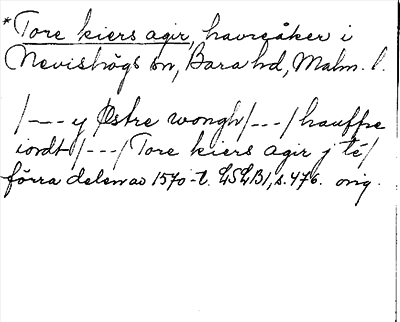 *Tore kiers agir, havreåker i
Nevishögs sn, Bara hd, Malm. l.
/--- y Østre wongh/---/hauffre
iordt/---/Tore kiers agir j té/
förra delen av 1570-t. LSLB1, s. 476. orig.